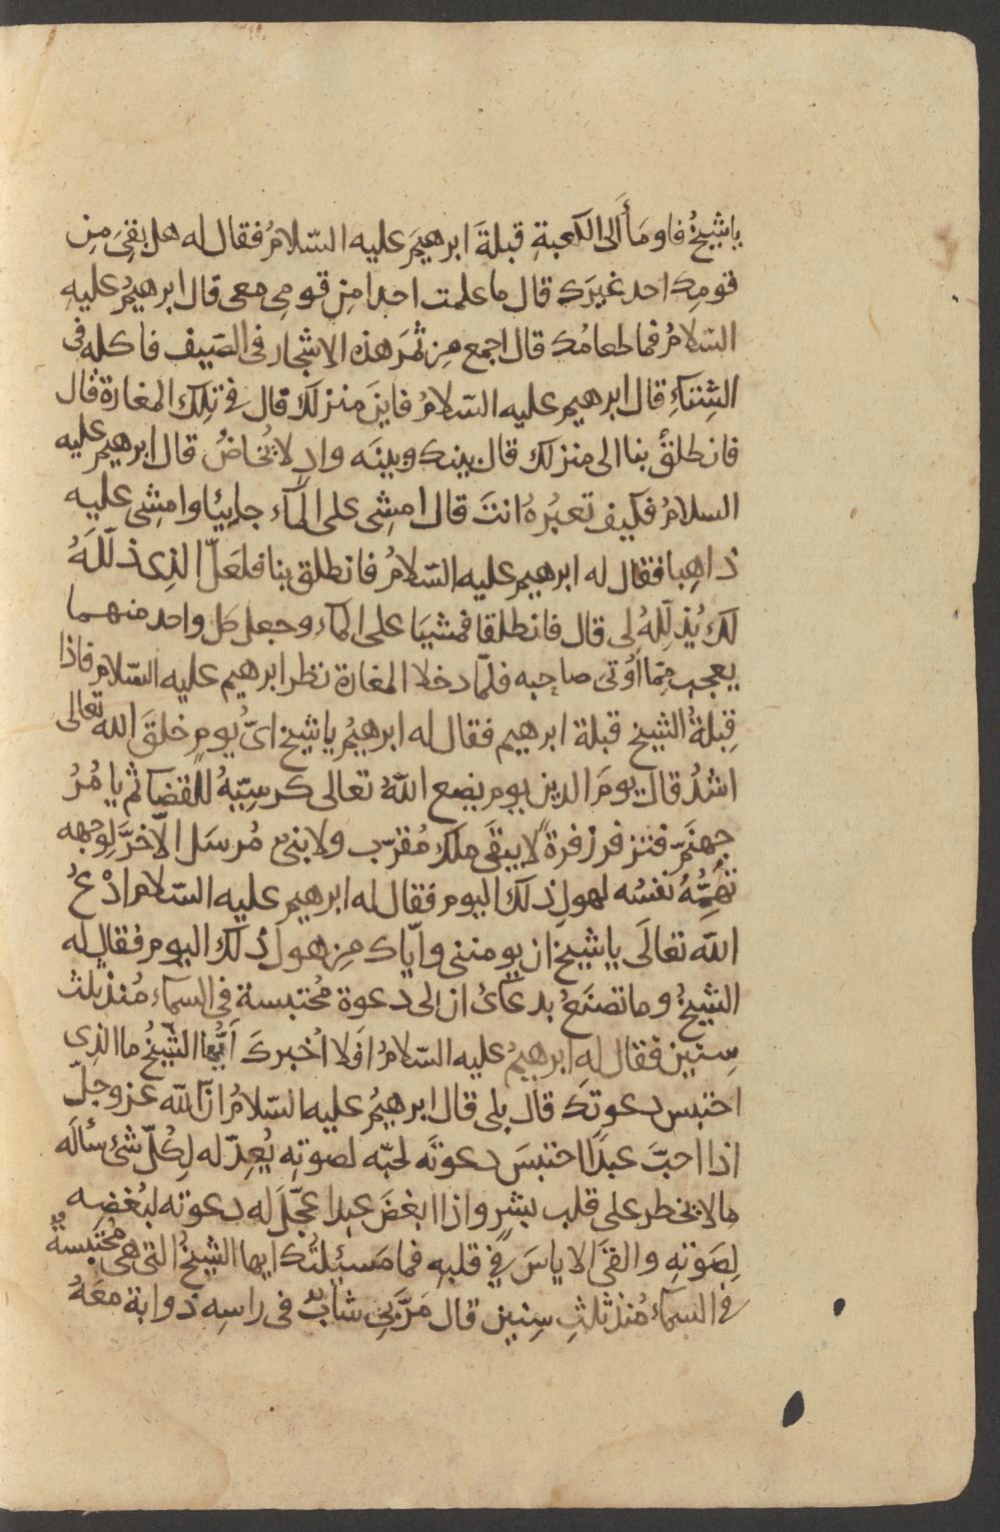 ياشيخُ فاومَأ الى الكعبةِ قبلةَ ابرهيمَ عليه السّلامُ فقال له هل بقىَ مِن
قومِك احد غيرَك قال ما علمت احدا مِن قومى معى قال ابرهيمُ عليهِ
السّلامُ فما طعامُك قال اجمع مِن ثمَر هذه الاشجار فى الصّيف فاكله فى
الشِتآءِ قال ابرهيم عليه السّلامُ فاينَ منزلكَ قال فى تِلك المغارة قال
فانطلقْ بنا الى منزلك قال بينك وبينَه وادٍ لا يُخاضُ قال ابرهيم عليه
السلامُ فكيف تعبُرهُ انتَ قال امشِى على المآء جايِيًا وامشِى عليه
ذاهِبا فقال له ابرهيم عليه السّلامُ فانطلق بنا فلعَلّ الذِى ذلّلَهُ
لك يُذلّلِهُ لِى قال فانطلقا فمشيَا على المآء وجعل كل واحد منهما
يعجب مِمّا اُوتى صاحِبه فلمّا دخلا المغارة نظر ابرهيم عليه السّلام فاذا
قِبلةُ الشيخ قبلة ابرهيم فقال له ابرهيمُ ياشيخ اىُّ يومٍ خلقَ الله تعالى
اشدُ قال يومَ الدين يوم يضع اللهُ تعالى كرسِيّهُ للقضآ ثم يامُرُ
جهنمَ فتزفر زفرةً لا يبقَى ملَك مُقرّب ولا بنىٌ مُرسَل الّا خرَّ لِوجهه
تهُمّهُ نفسُه لهولِ ذلك اليوم فقال له ابرهيم عليه السّلام ادْعُ
الله تعالَى ياشيخ ان يومننى وايّاك مِن هول ذلك اليوم فقال له
الشيخُ وما تصنَعُ بدعآئ ان لى دعوة مُحتبسة فى السمآء مُنذ ثلث
سِنين فقال له ابرهيمُ عليه السّلامُ افَلا اُخبركَ ايُّها الشّيخُ ما الذِى
احتبس دعوتك قال بلى قال ابرهيمُ عليه السّلامُ انّ الله عز وجلّ
اذا احبّ عبدًا احتبسَ دعوتَه لحبّه لصوتِه يُعِدّ له لِكُلّ شئ سألَه
ما لا يخطر على قلب بشرٍ واذا ابغضَ عبدا عجّلَ له دعوته لبُغضِه
لِصَوتِه والقىَ الاياسَ فى قلبه فما مَسئلتُك ايها الشيخُ التى هى مُحتبسةٌ
فى السمآء مُنذ ثلثِ سِنين قال مَرّ بِى شابٌ فى راسِه ذوابة معَهُ